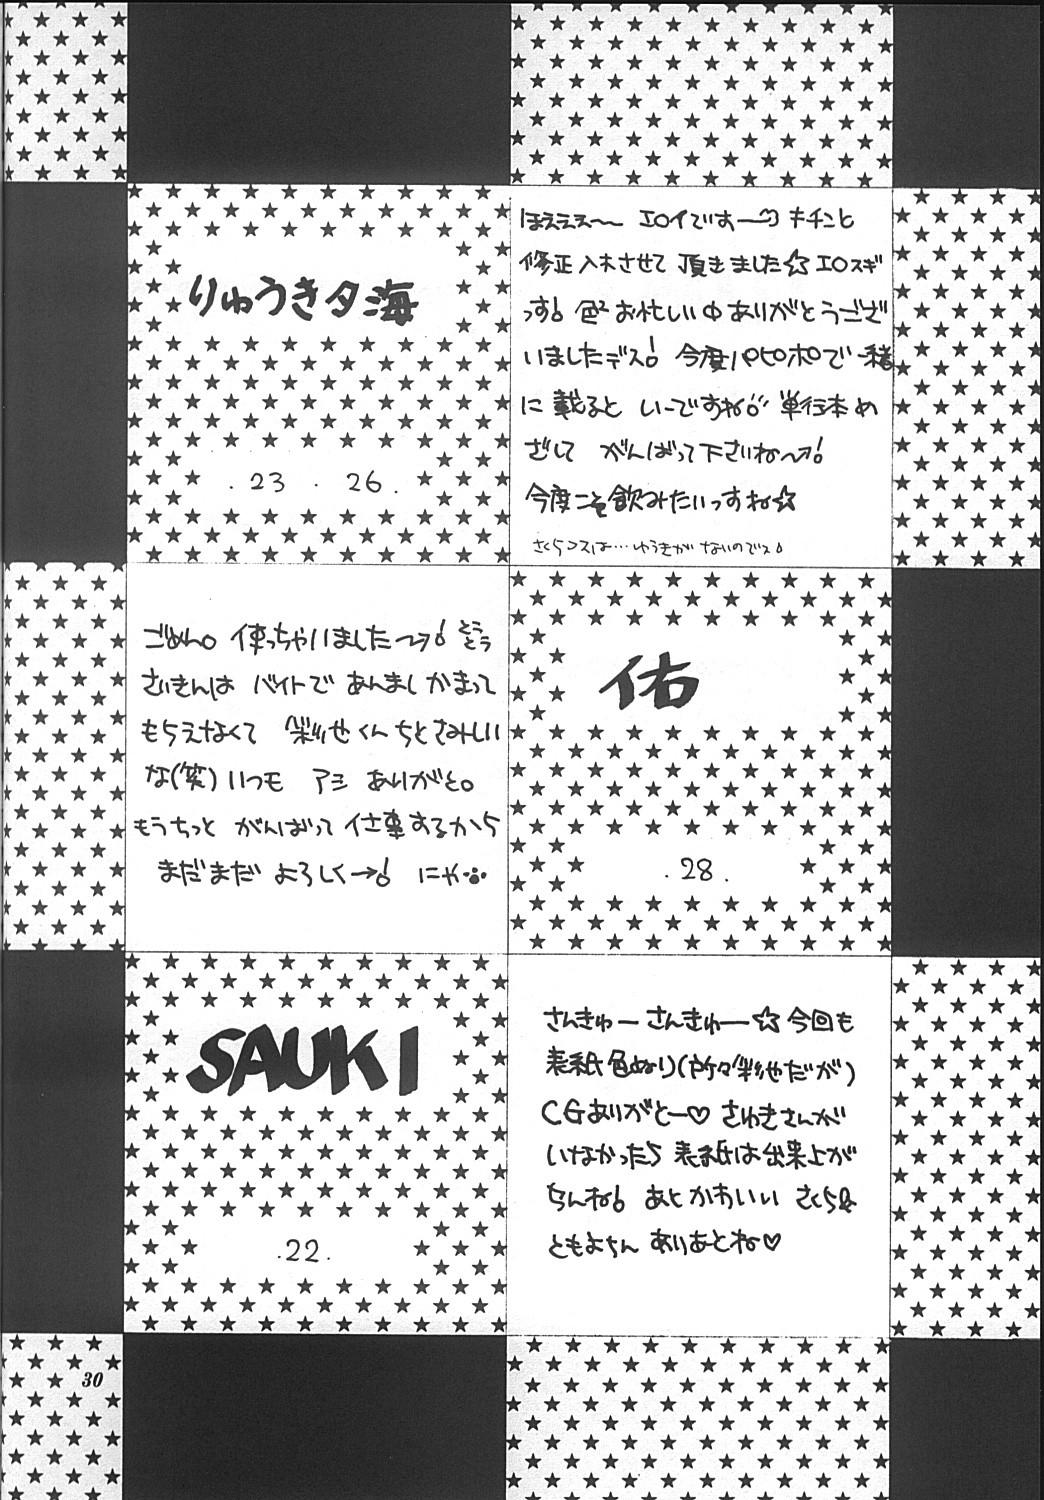 りゅうき夕海
.23 . 26.
ほええぇ〜 エロイですー♡ キチンと
修正入れさせて頂きました☆ エロスギ
っす! 色々お忙しい中ありがとうござ
いましたデス! 今度パピポで一緒
に載ると いーですね♪ 単行本め
ざして がんばって下さいね〜!
今度こそ飲みたいっすね☆
さくらコスは…ゆうきがないのでス!
佑
.28.
ごめん。使っちゃいました〜! とうとう
さいきんは バイトで あんましかまって
もらえなくて 彩世くんちとさみしい
な(笑) いつも アシ ありがと。
もうちっと がんばって 仕事するから
まだまだ よろしく→! にゃ…
SAUKI
.22.
さんきゅー さんきゅー☆ 今回も
表紙色ぬり(所々彩世だが)
CGありがとー♡ さゆきさんが
いなかったら 表紙は出来上が
らんね! あと かわいい さくら&
ともよちん ありあとね♡
30